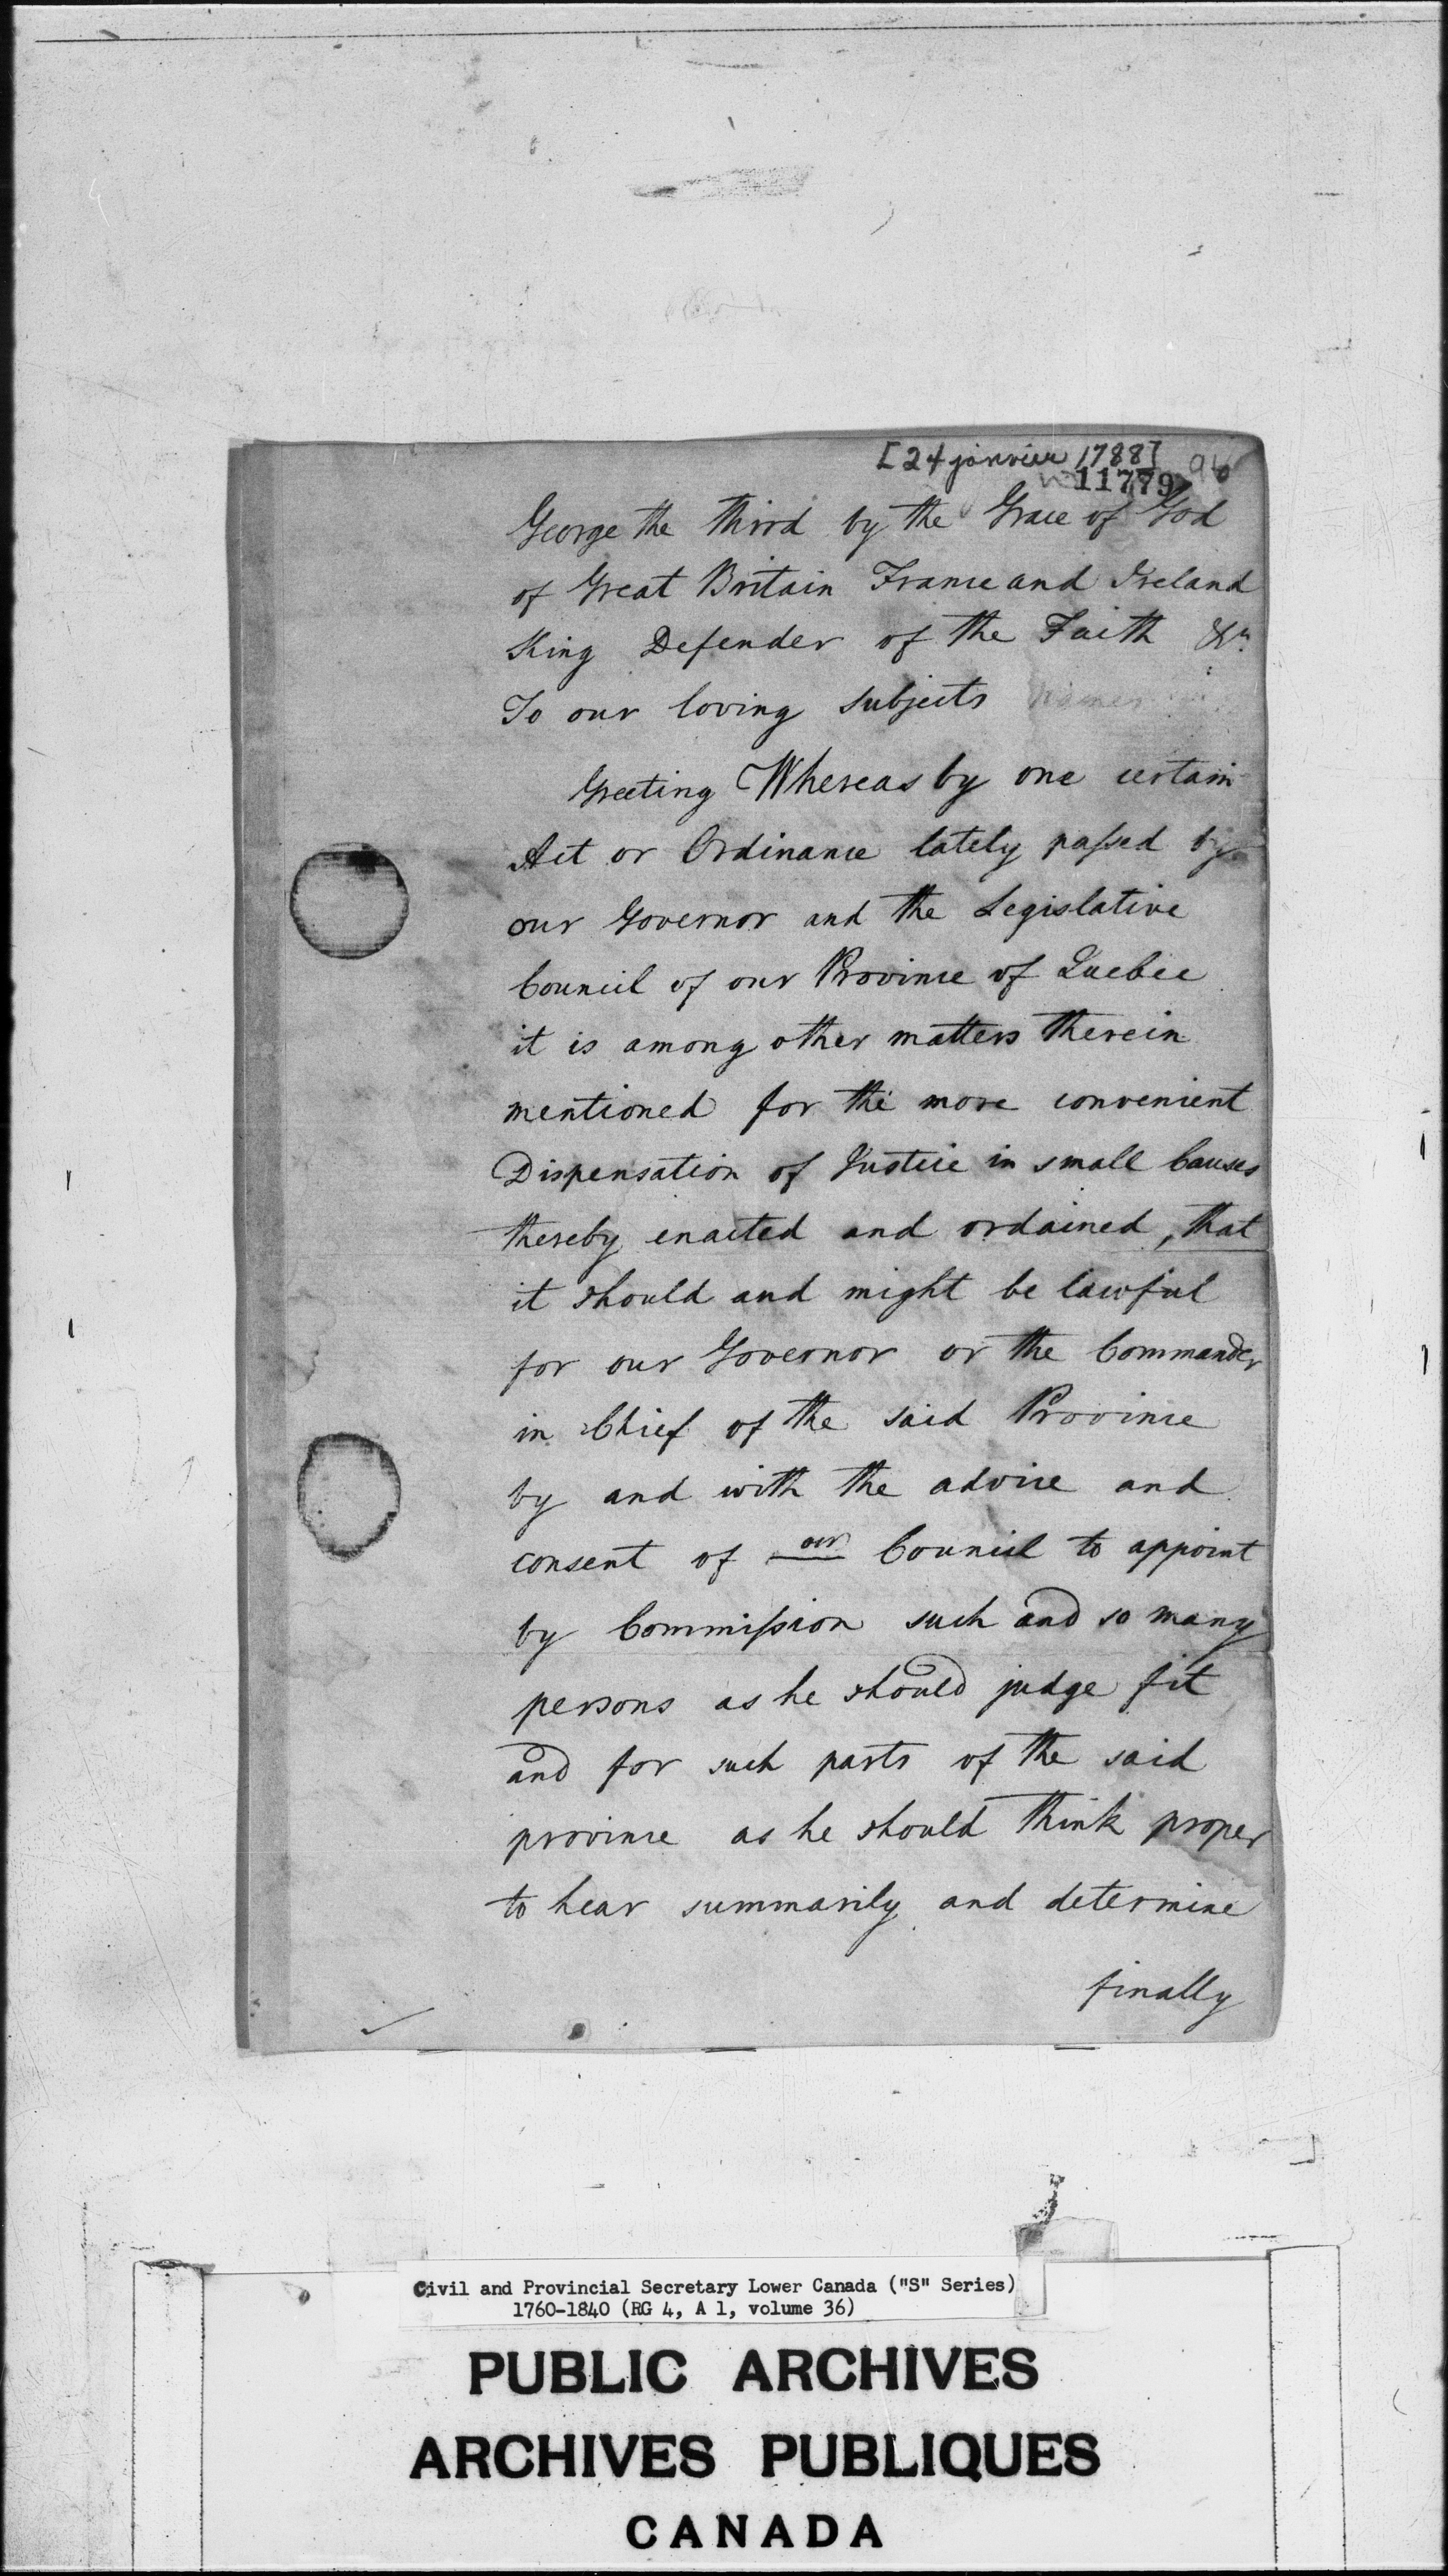 [24 janvier 1788]
11779
George the third by the Grace of God
of Great Britain France and Ireland
King Defender of the Faith &c.
To our loving subjects
Greeting Whereas by one certain
Act or Ordinance lately passed by
our Governor and the Legislative
Council of our Province of Quebec
it is among other matters therein
mentioned for the more convenient
Dispensation of Justice in small Causes
thereby enacted and ordained, that
it should and might be lawful
for our Governor or the Commander
in Chief of the said Province
by and with the advice and
consent of our Council to appoint
by Commission such and so many
persons as he should judge fit
and for such parts of the said
province as he should think proper
to hear summarily and determine
finally
Civil and Provincial Secretary Lower Canada ("S" Series)
1760-1840 (RG 4, A 1, volume 36)
PUBLIC ARCHIVES
ARCHIVES PUBLIQUES
CANADA